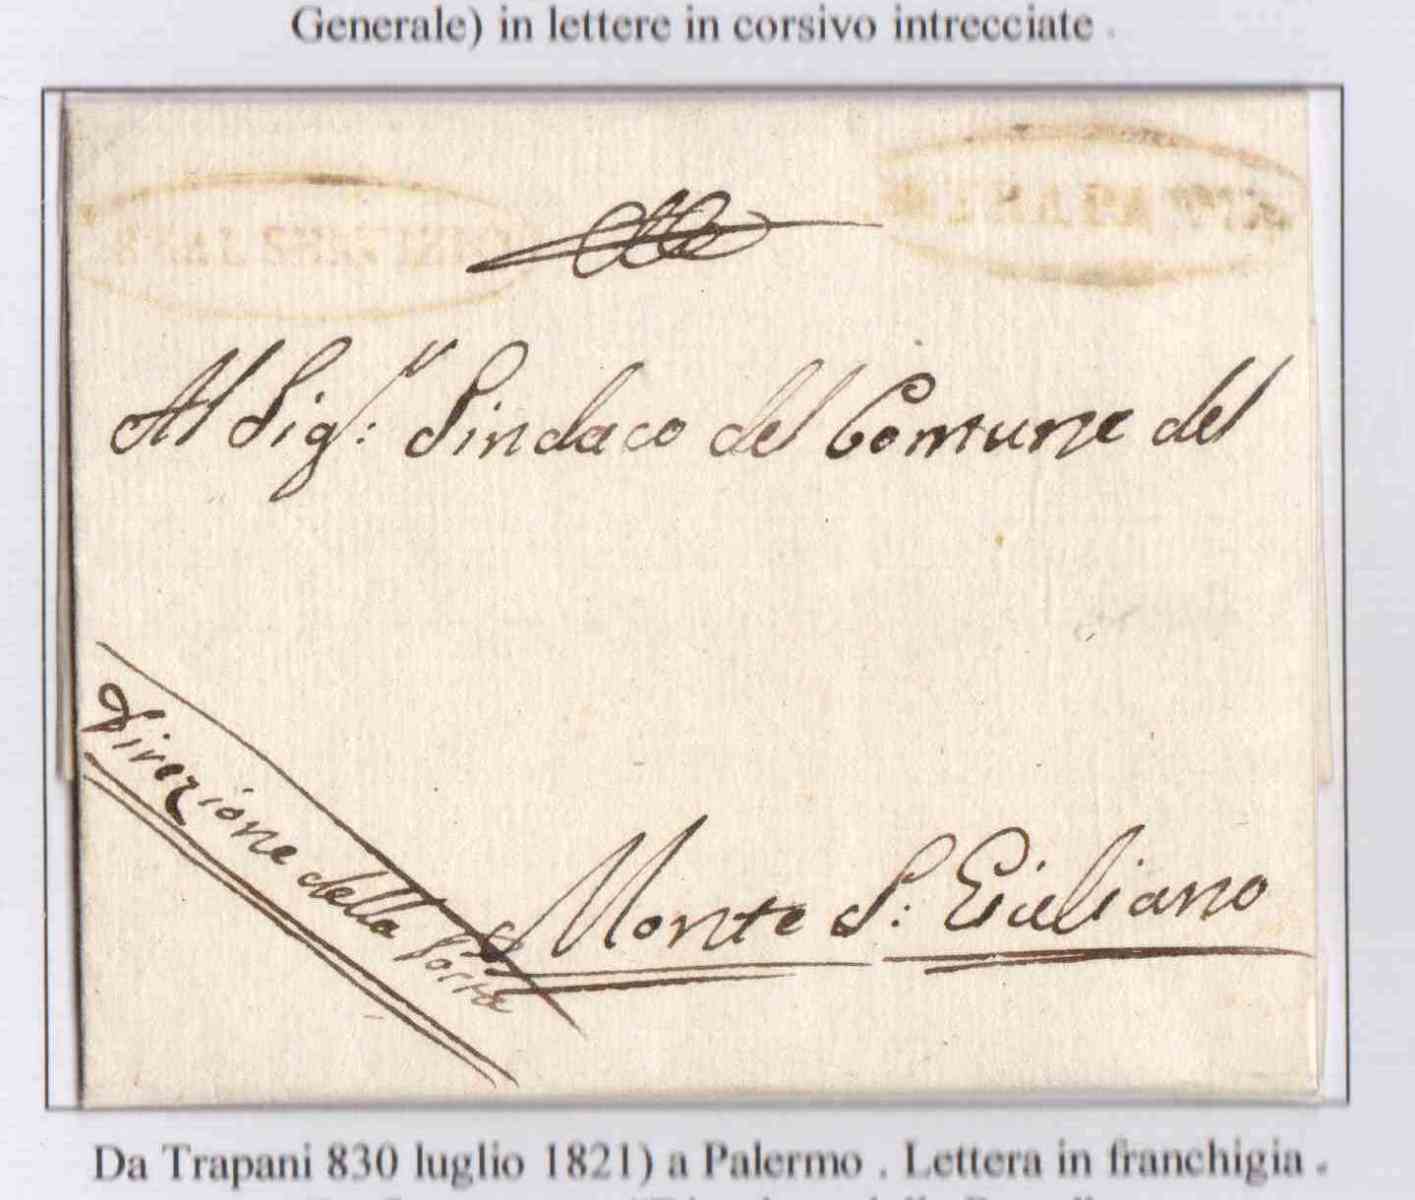 Generale) in lettere in corsivo intrecciate .
REAL SERVIZIO
Al Sig:r Sindaco del Comune del
Monte S: Giuliano
Direzione della Posta
Da Trapani 830 luglio 1821) a Palermo . Lettera in franchigia .